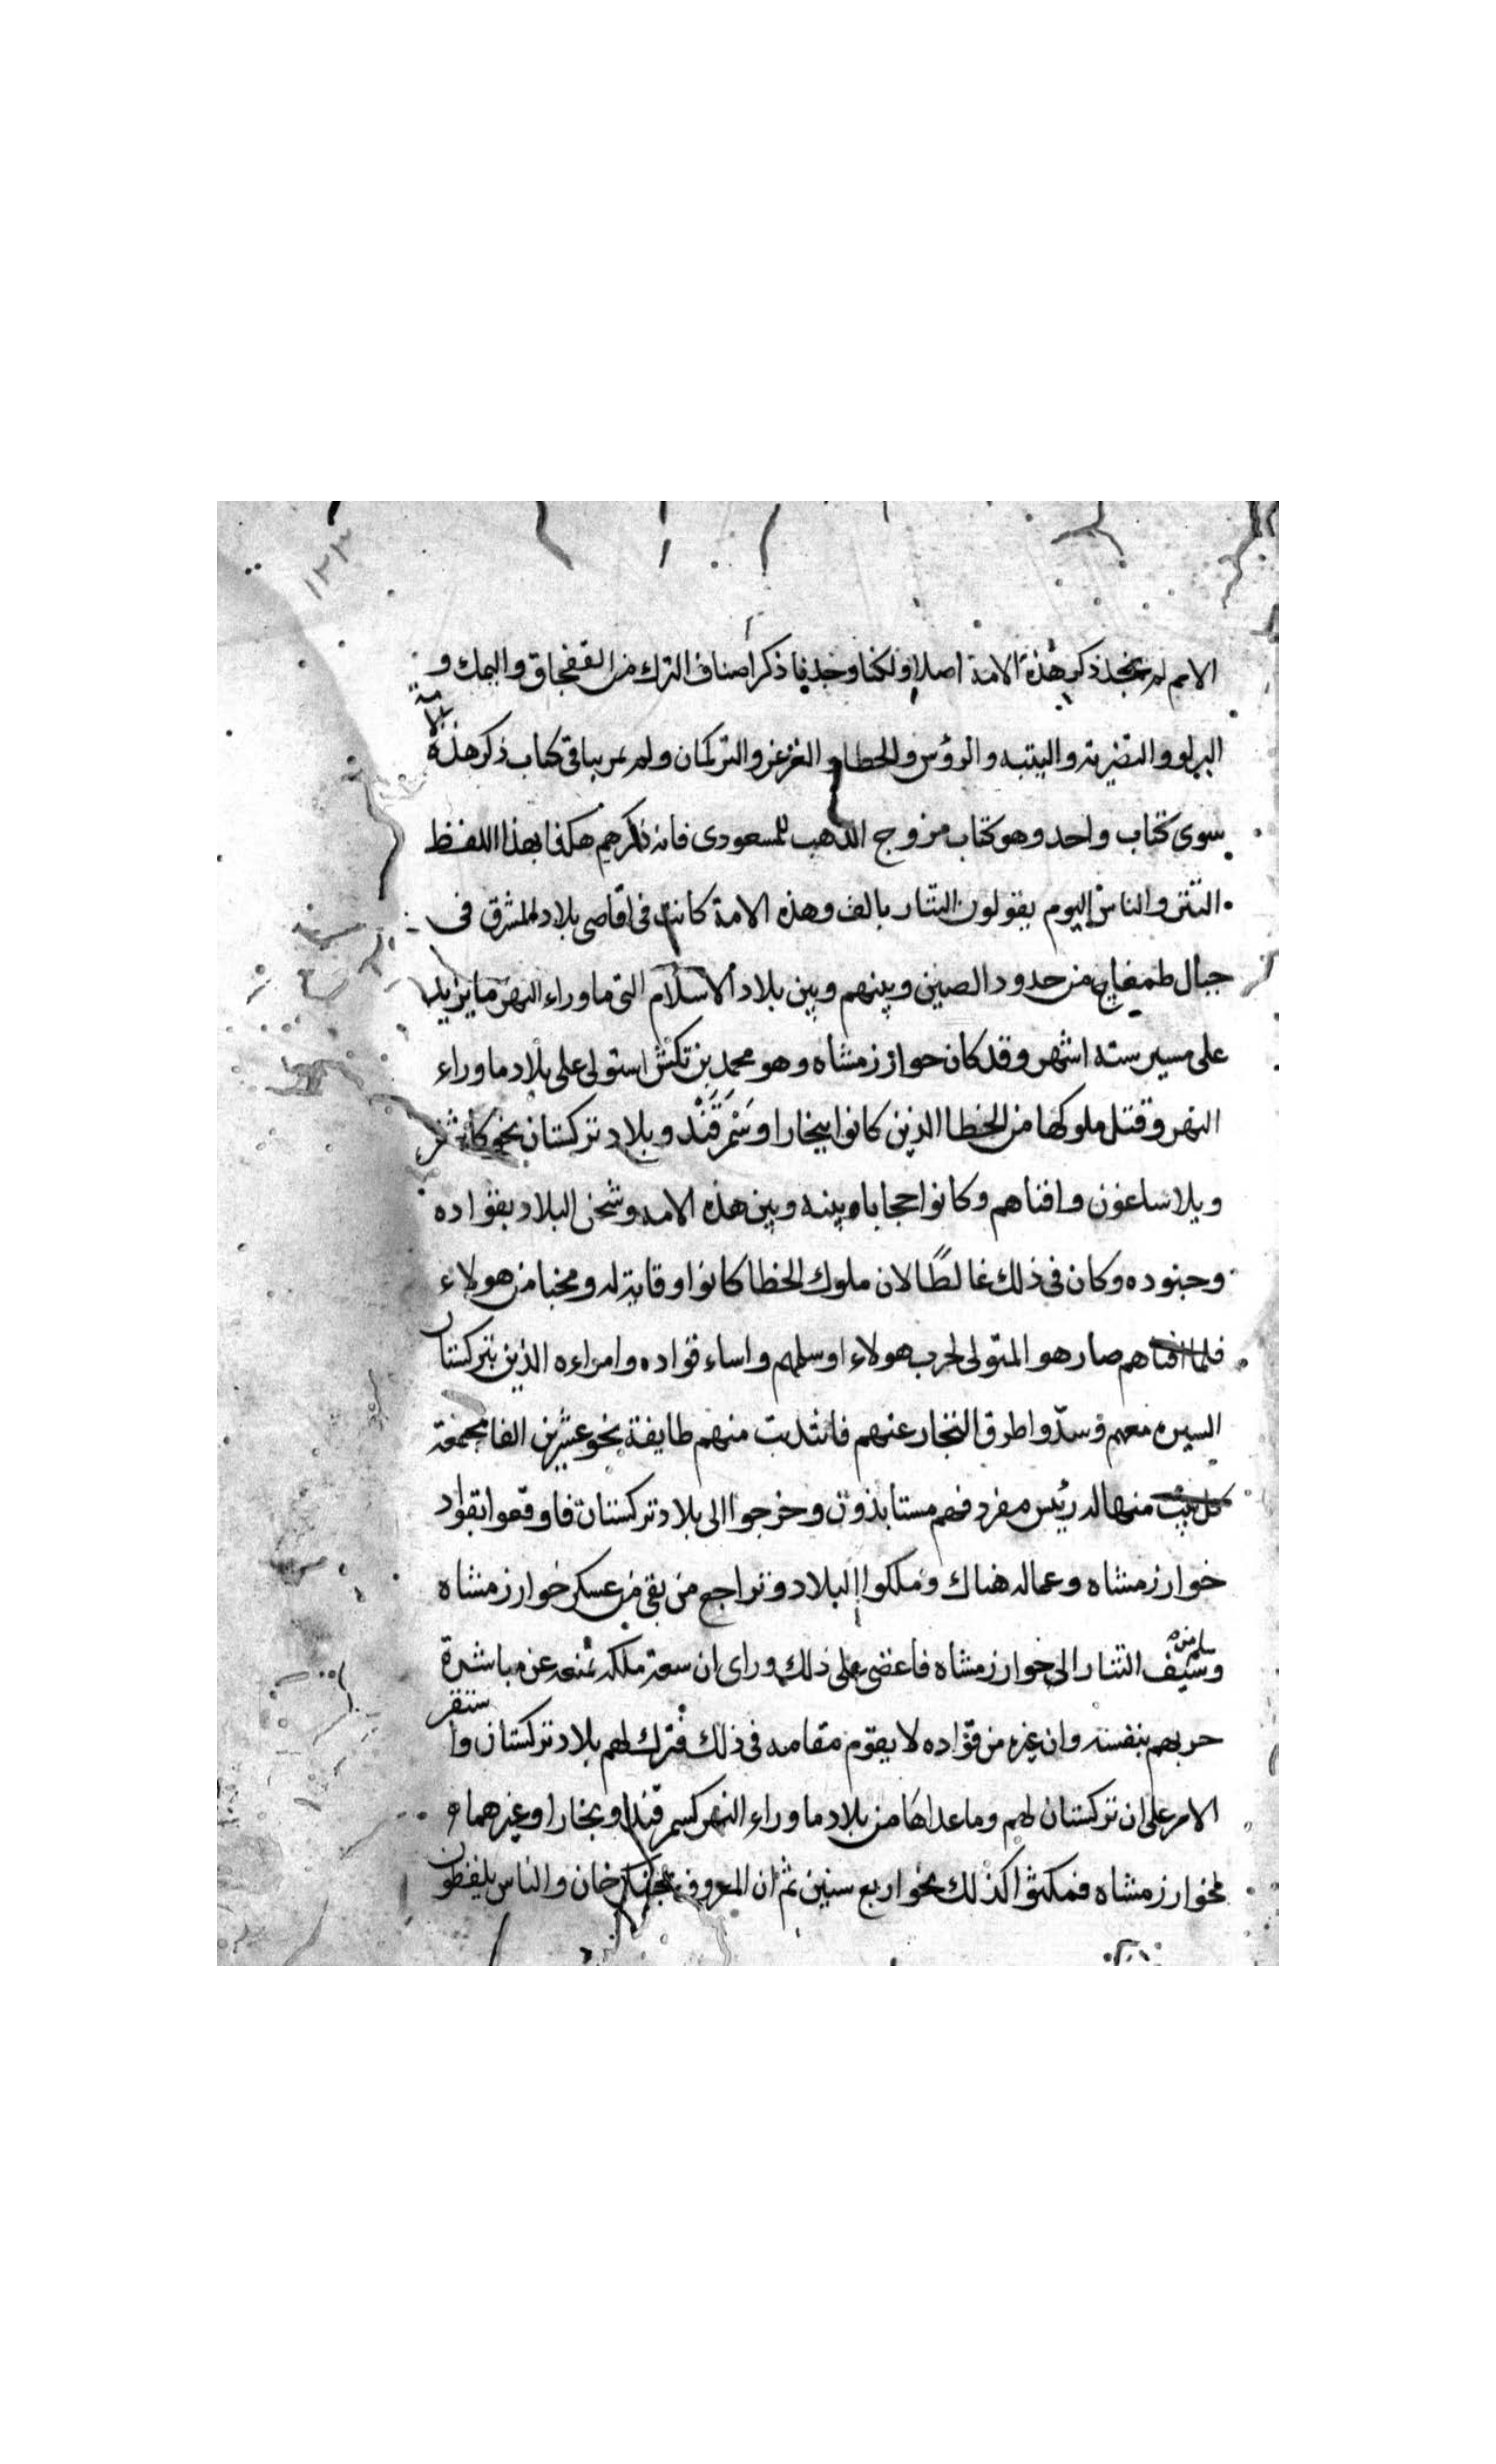 ١٢٣
الامم لم نجد ذكر هذه الامة اصلا ولكنا وجدنا ذكر اصناف الترك من القفجاق واليمك و
البرلو والتضرية واليتبه والروس والخطا والغزغز والتركمان ولم يمر بنا فى كتاب ذكر هذه الامة
سوى كتاب واحد وهو كتاب مروج الذهب للمسعودى فانه ذكرهم هكذا بهذا اللفظ
التتر والناس اليوم يقولون التتار بالف وهذه الامة كانت فى اقاصى بلاد المشرق فى
جبال طمغاج من حدود الصين وبينهم وبين بلاد الاسلام التى ما وراء النهر ما يزيد
على مسير ستة اشهر وقد كان خوارزمشاه وهو محمد بن تكش استولى على بلاد ما وراء
النهر وقتل ملوكها من الخطا الذين كانوا ببخارا وسَمَرقَنْد وبلاد تركستان نحو كاشغر
وبلاساغون وافناهم وكانوا حجابا بينه وبين هذه الامة وشحن البلاد بقواده
وجنوده وكان فى ذلك غالطًا لان ملوك الخطا كانوا وقاية له ومجنا من هولاء
فلما افناهم صار هو المتولى لحرب هولاء او سلمهم واساء قواده وامراءه الذين بتركستان
السيره معهم وسدّوا طرق التجار عنهم فانتدبت منهم طايفة نحو عشرين الفا مجتمعة
كل بيت منها له رئيس مفرد فهم متساندون وخرجوا الى بلاد تركستان فاوقعوا بقواد
خوارزمشاه وعماله هناك وملكوا البلاد وتراجع من بقى من عسكر خوارزمشاه
وسلم من سيف التتار الى خوارزمشاه فاغضى على ذلك وراى ان سعة ملكه تمنعه عن مباشرة
حربهم بنفسه وان غيره من قواده لا يقوم مقامه فى ذلك فترك لهم بلاد تركستان واستقر
الامر على ان تركستان لهم وما عداها من بلاد ما وراء النهر كسمرقند وبخارا وغيرهما
لخوارزمشاه فمكثوا كذلك نحو اربع سنين ثم ان المعروف بجنكزخان والناس يلفظون